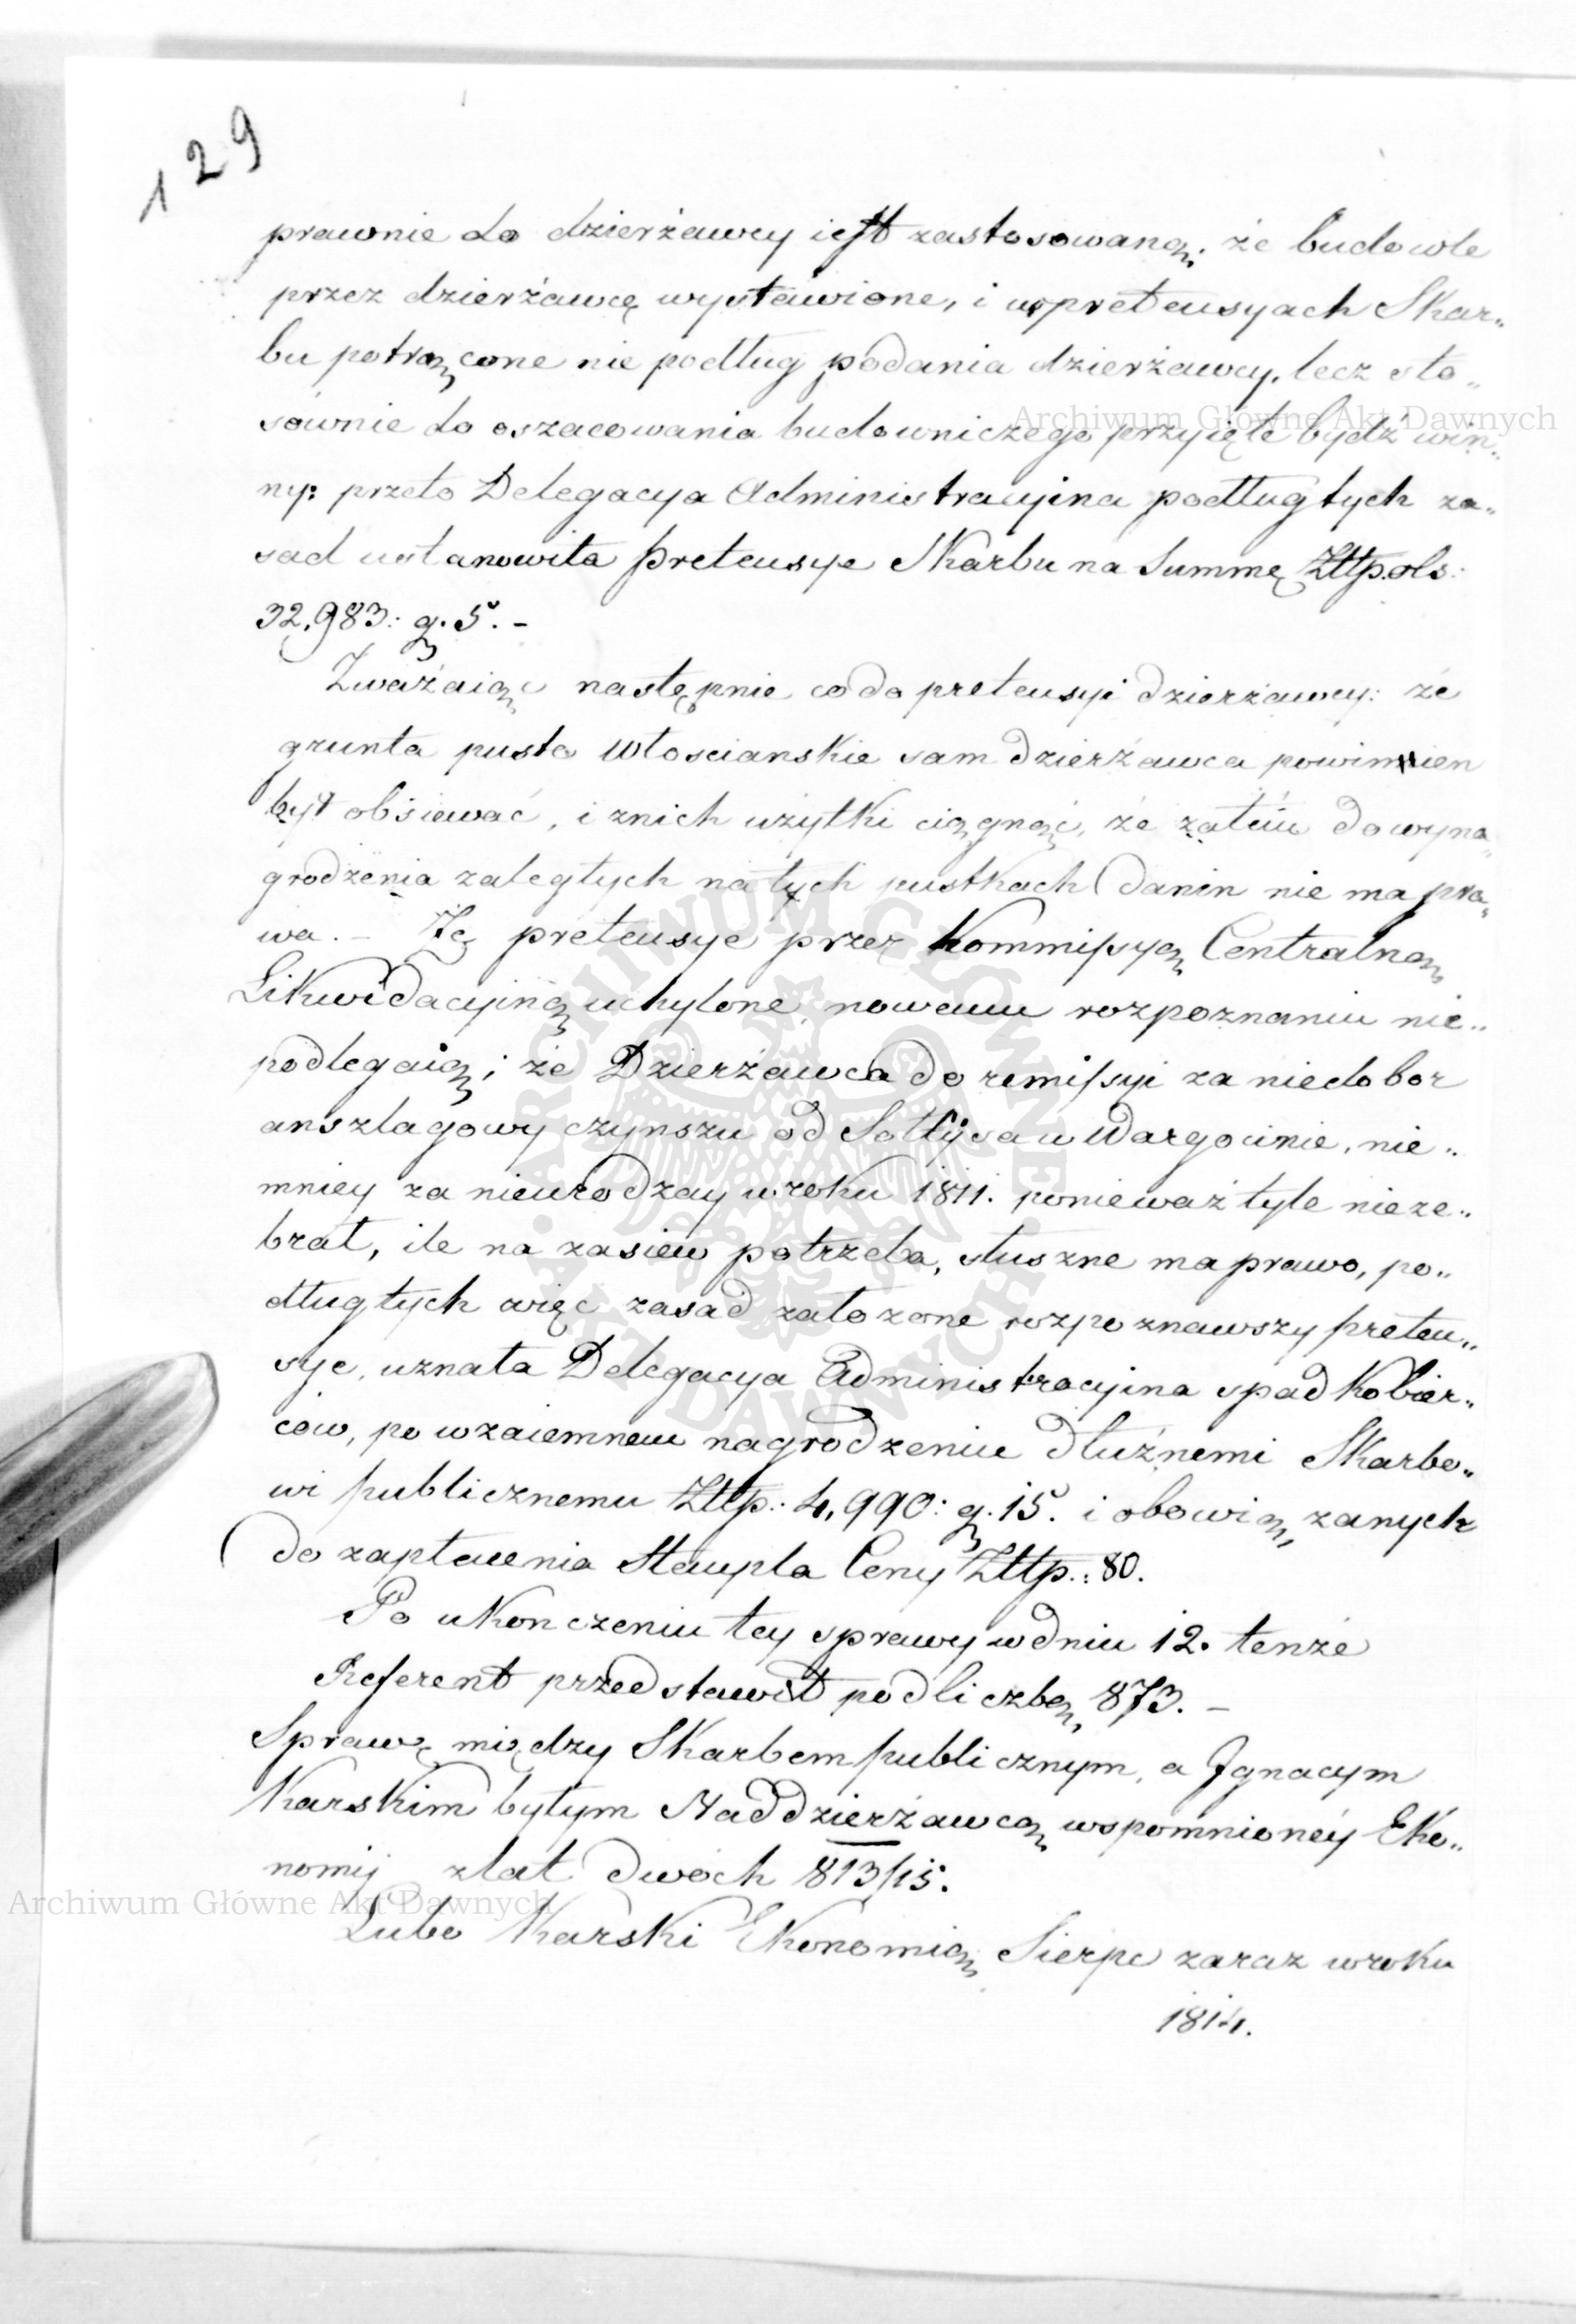 129
prawnie do dzierżawcy iest zastosowaną; że budowle
przez dzierżawcę wystawione, i w pretensyach Skar„
bu potrącone nie podług podania dzierżawcy, lecz sto„
sównie do oszacowania budowniczego przyięte bydź win„
ny: przeto Delegacya Administracyina podług tych za„
sad ustanowiła pretensye Skarbu na Summę Złtp.ols:
32,983: g. 5. –
Zważaiąc następnie co do pretensyi dzierżawcy: że
grunta puste Włosciańskie sam dzierżawca powinien
był obsiewać, i z nich użytki ciągnąć, że zatém do wyna„
grodzenia zaległych na tych pustkach danin nie ma pra„
wa. – Że pretensye przez Kommissyą Centralną
Likwidacyiną uchylone, nowemu rozpoznaniu nie„
podlegaią; że Dzierżawca do remissyi za niedobor
anszlagowy czynszu od Sołtysa w Wargocinie, nie„
mniey za nieurodzay w roku 1811. ponieważ tyle nieze„
brał, ile na zasiew potrzeba, słuszne ma prawo, po„
dług tych więc zasad założone rozpoznawszy preten„
sye, uznała Delegacya Administracyina spadkobier„
ców, po wzaiemnem nagrodzeniu dłużnemi Skarbo„
wi publicznemu Złtp.: 4,990: g. 15. i obowiązanych
do zapłacenia Stempla Ceny Złtp.: 80.
Po ukonczeniu tey sprawy w dniu 12. tenże
Referent przedstawił pod liczbą 873. –
Sprawę między Skarbem publicznym, a Ignacym
Karskim byłym Naddzierżawcą wspomnioney Eko„
nomij z lat dwóch 813/15.
Lubo Karski Ekonomią Sierpc zaraz w roku
1814.
Archiwum Główne Akt Dawnych
Archiwum Główne Akt Dawnych
ARCHIWUM GŁÓWNE AKT DAWNYCH